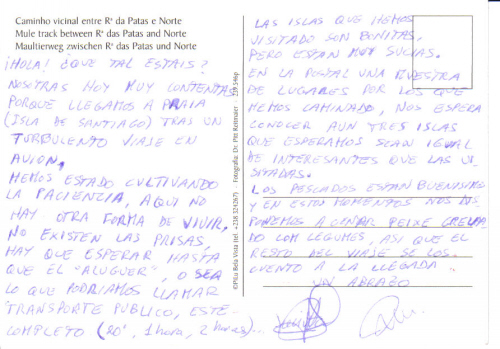 Caminho vicinal entre Rª da Patas e Norte
Mule track between Rª das Patas and Norte
Maultierweg zwischen Rª das Patas und Norte
¡HOLA! ¿QUE TAL ESTAIS?
NOSOTRAS HOY MUY CONTENTAS
PORQUE LLEGAMOS A PRAIA
(ISLA DE SANTIAGO) TRAS UN
TURBULENTO VIAJE EN
AVION.
HEMOS ESTADO CULTIVANDO
LA PACIENCIA, AQUI NO
HAY OTRA FORMA DE VIVIR,
NO EXISTEN LAS PRISAS,
HAY QUE ESPERAR HASTA
QUE EL "ALUGUER", O SEA
LO QUE PODRIAMOS LLAMAR
TRANSPORTE PUBLICO, ESTE
COMPLETO (20', 1 hora, 2 horas)...
©Pilu Bela Vista tel. +238 324267) - Fotografia: Dr. Pitt Reitmaier
LAS ISLAS QUE HEMOS
VISITADO SON BONITAS,
PERO ESTAN MUY SUCIAS.
EN LA POSTAL UNA MUESTRA
DE LUGARES POR LOS QUE
HEMOS CAMINADO, NOS ESPERA
CONOCER AUN TRES ISLAS
QUE ESPERAMOS SEAN IGUAL
DE INTERESANTES QUE LAS VI-
SITADAS.
LOS PESCADOS ESTAN BUENISIMOS
Y EN ESTOS MOMENTOS NOS DIS
PONEMOS A CENAR PEIXE GRELHA
DO COM LEGUMES, ASI QUE EL
RESTO DEL VIAJE SE LOS
CUENTO A LA LLEGADA.
UN ABRAZO